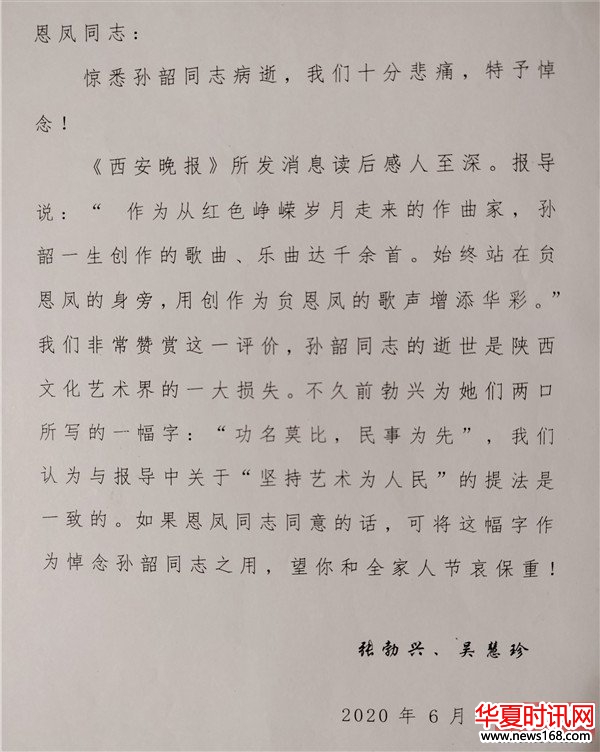 恩凤同志：
惊悉孙韶同志病逝，我们十分悲痛，特予悼
念！
《西安晚报》所发消息读后感人至深。报导
说：“ 作为从红色峥嵘岁月走来的作曲家，孙
韶一生创作的歌曲、乐曲达千余首。始终站在贠
恩凤的身旁，用创作为贠恩凤的歌声增添华彩。”
我们非常赞赏这一评价，孙韶同志的逝世是陕西
文化艺术界的一大损失。不久前勃兴为她们两口
所写的一幅字：“功名莫比，民事为先”，我们
认为与报导中关于“坚持艺术为人民”的提法是
一致的。如果恩凤同志同意的话，可将这幅字作
为悼念孙韶同志之用，望你和全家人节哀保重！
张勃兴、吴慧珍
2020 年 6 月
华夏时讯网
www.news168.com